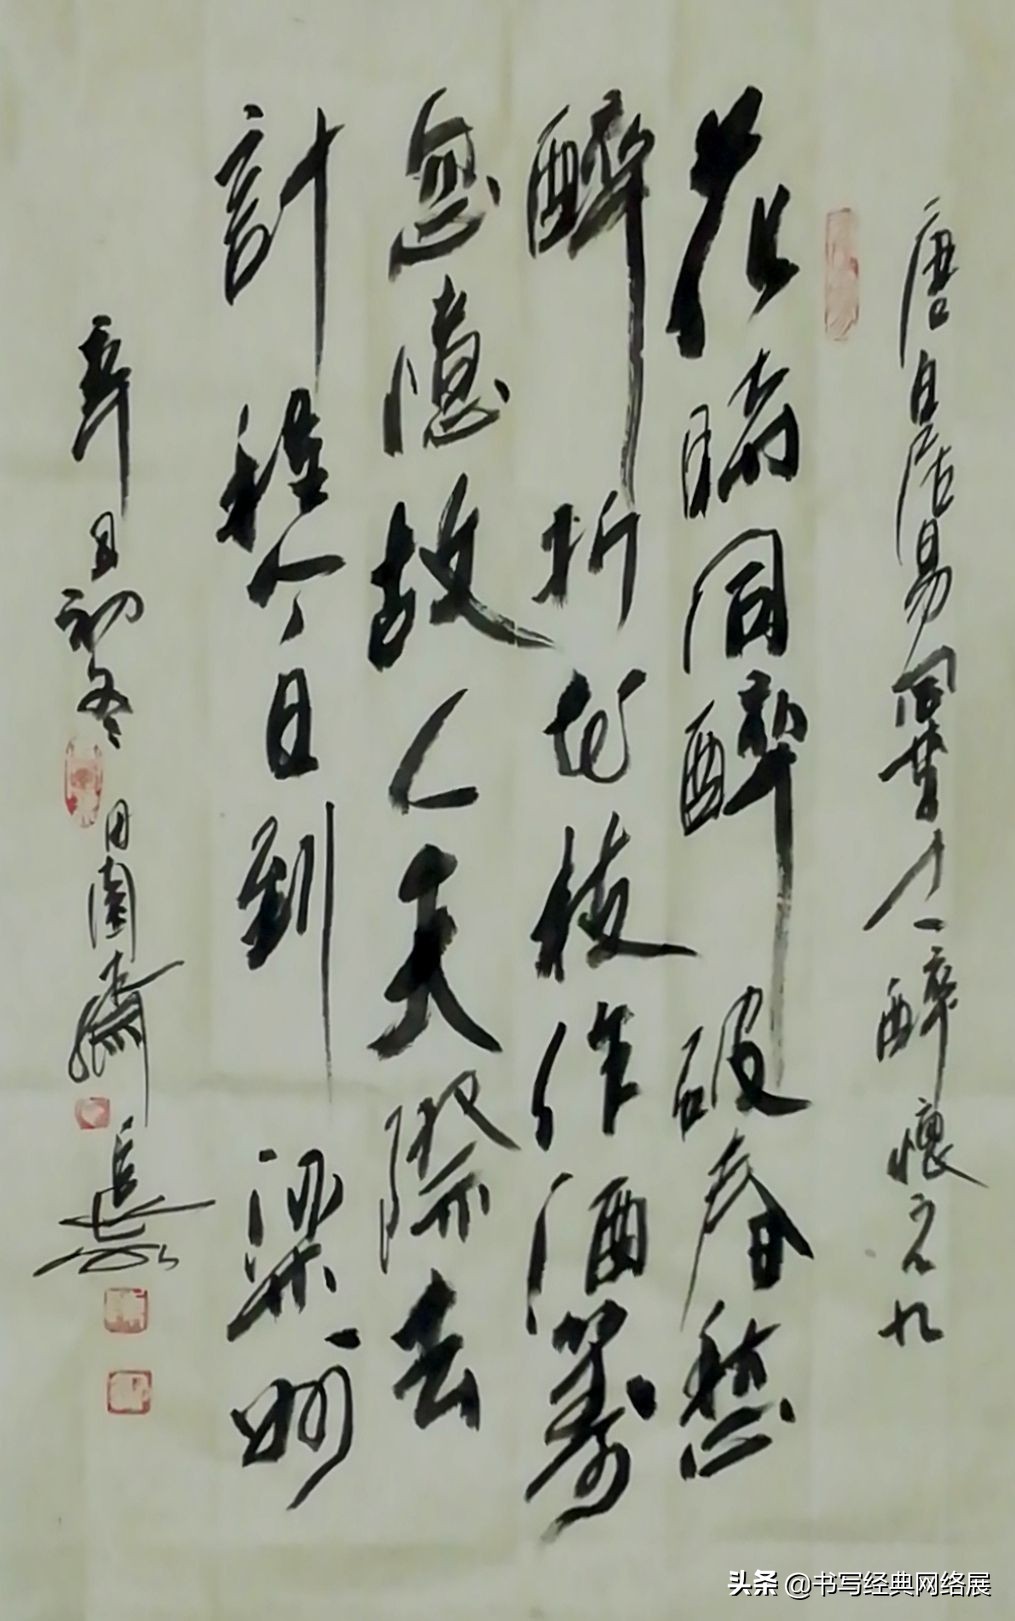 唐白居易同李十一醉懷元九
花時同醉破春愁
醉折花枝作酒籌
忽憶故人天際去
計程今日到梁州
辛丑初冬
田園
头条 @书写经典网络展